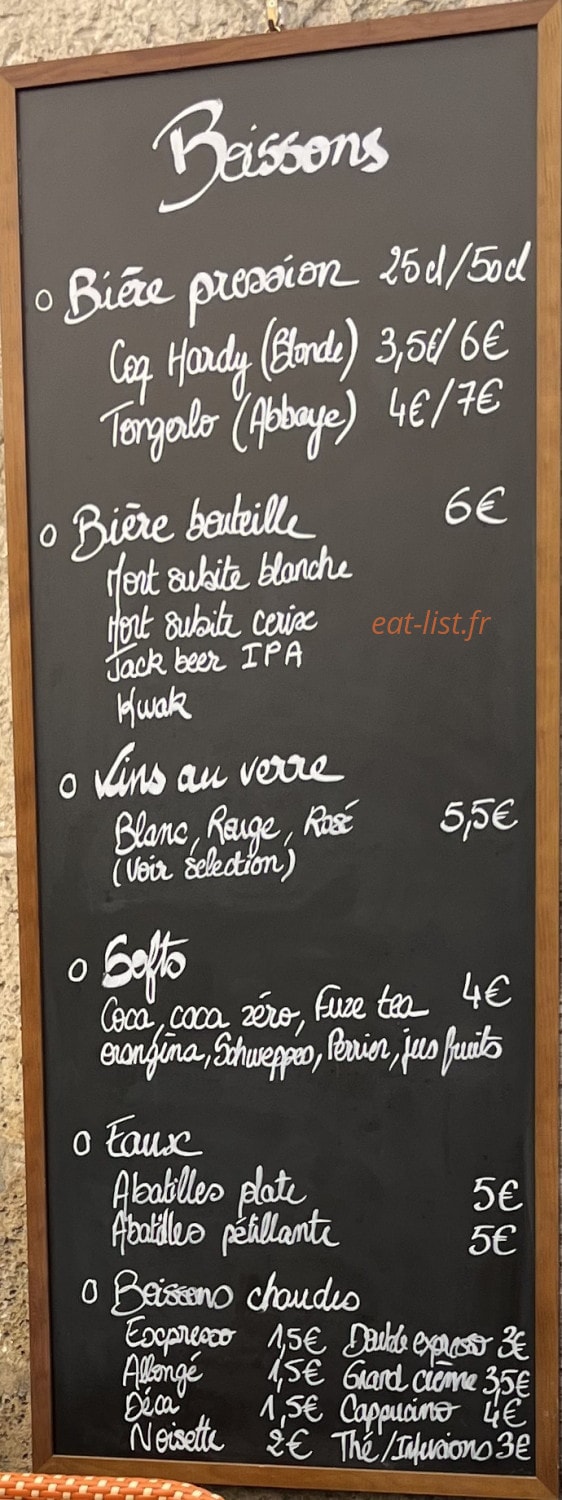 Boissons
o Bière pression 25cl/50cl
Coq Hardy (Blonde) 3,5€/6€
Tongerlo (Abbaye) 4€/7€
o Bière bouteille 6€
Mort subite blanche
Mort subite cerise
eat-list.fr
Jack beer IPA
Kwak
o Vins au verre
Blanc, Rouge, Rosé 5,5€
(Voir sélection)
o Softs
Coca, coca zéro, Fuze tea 4€
orangina, Schweppes, Perrier, jus fruits
o Eaux
Abatilles plate 5€
Abatilles pétillante 5€
o Boissons chaudes
Expresso 1,5€ Double expresso 3€
Allongé 1,5€ Grand crème 3,5€
Déca 1,5€ Cappucino 4€
Noisette 2€ Thé/Infusions 3€